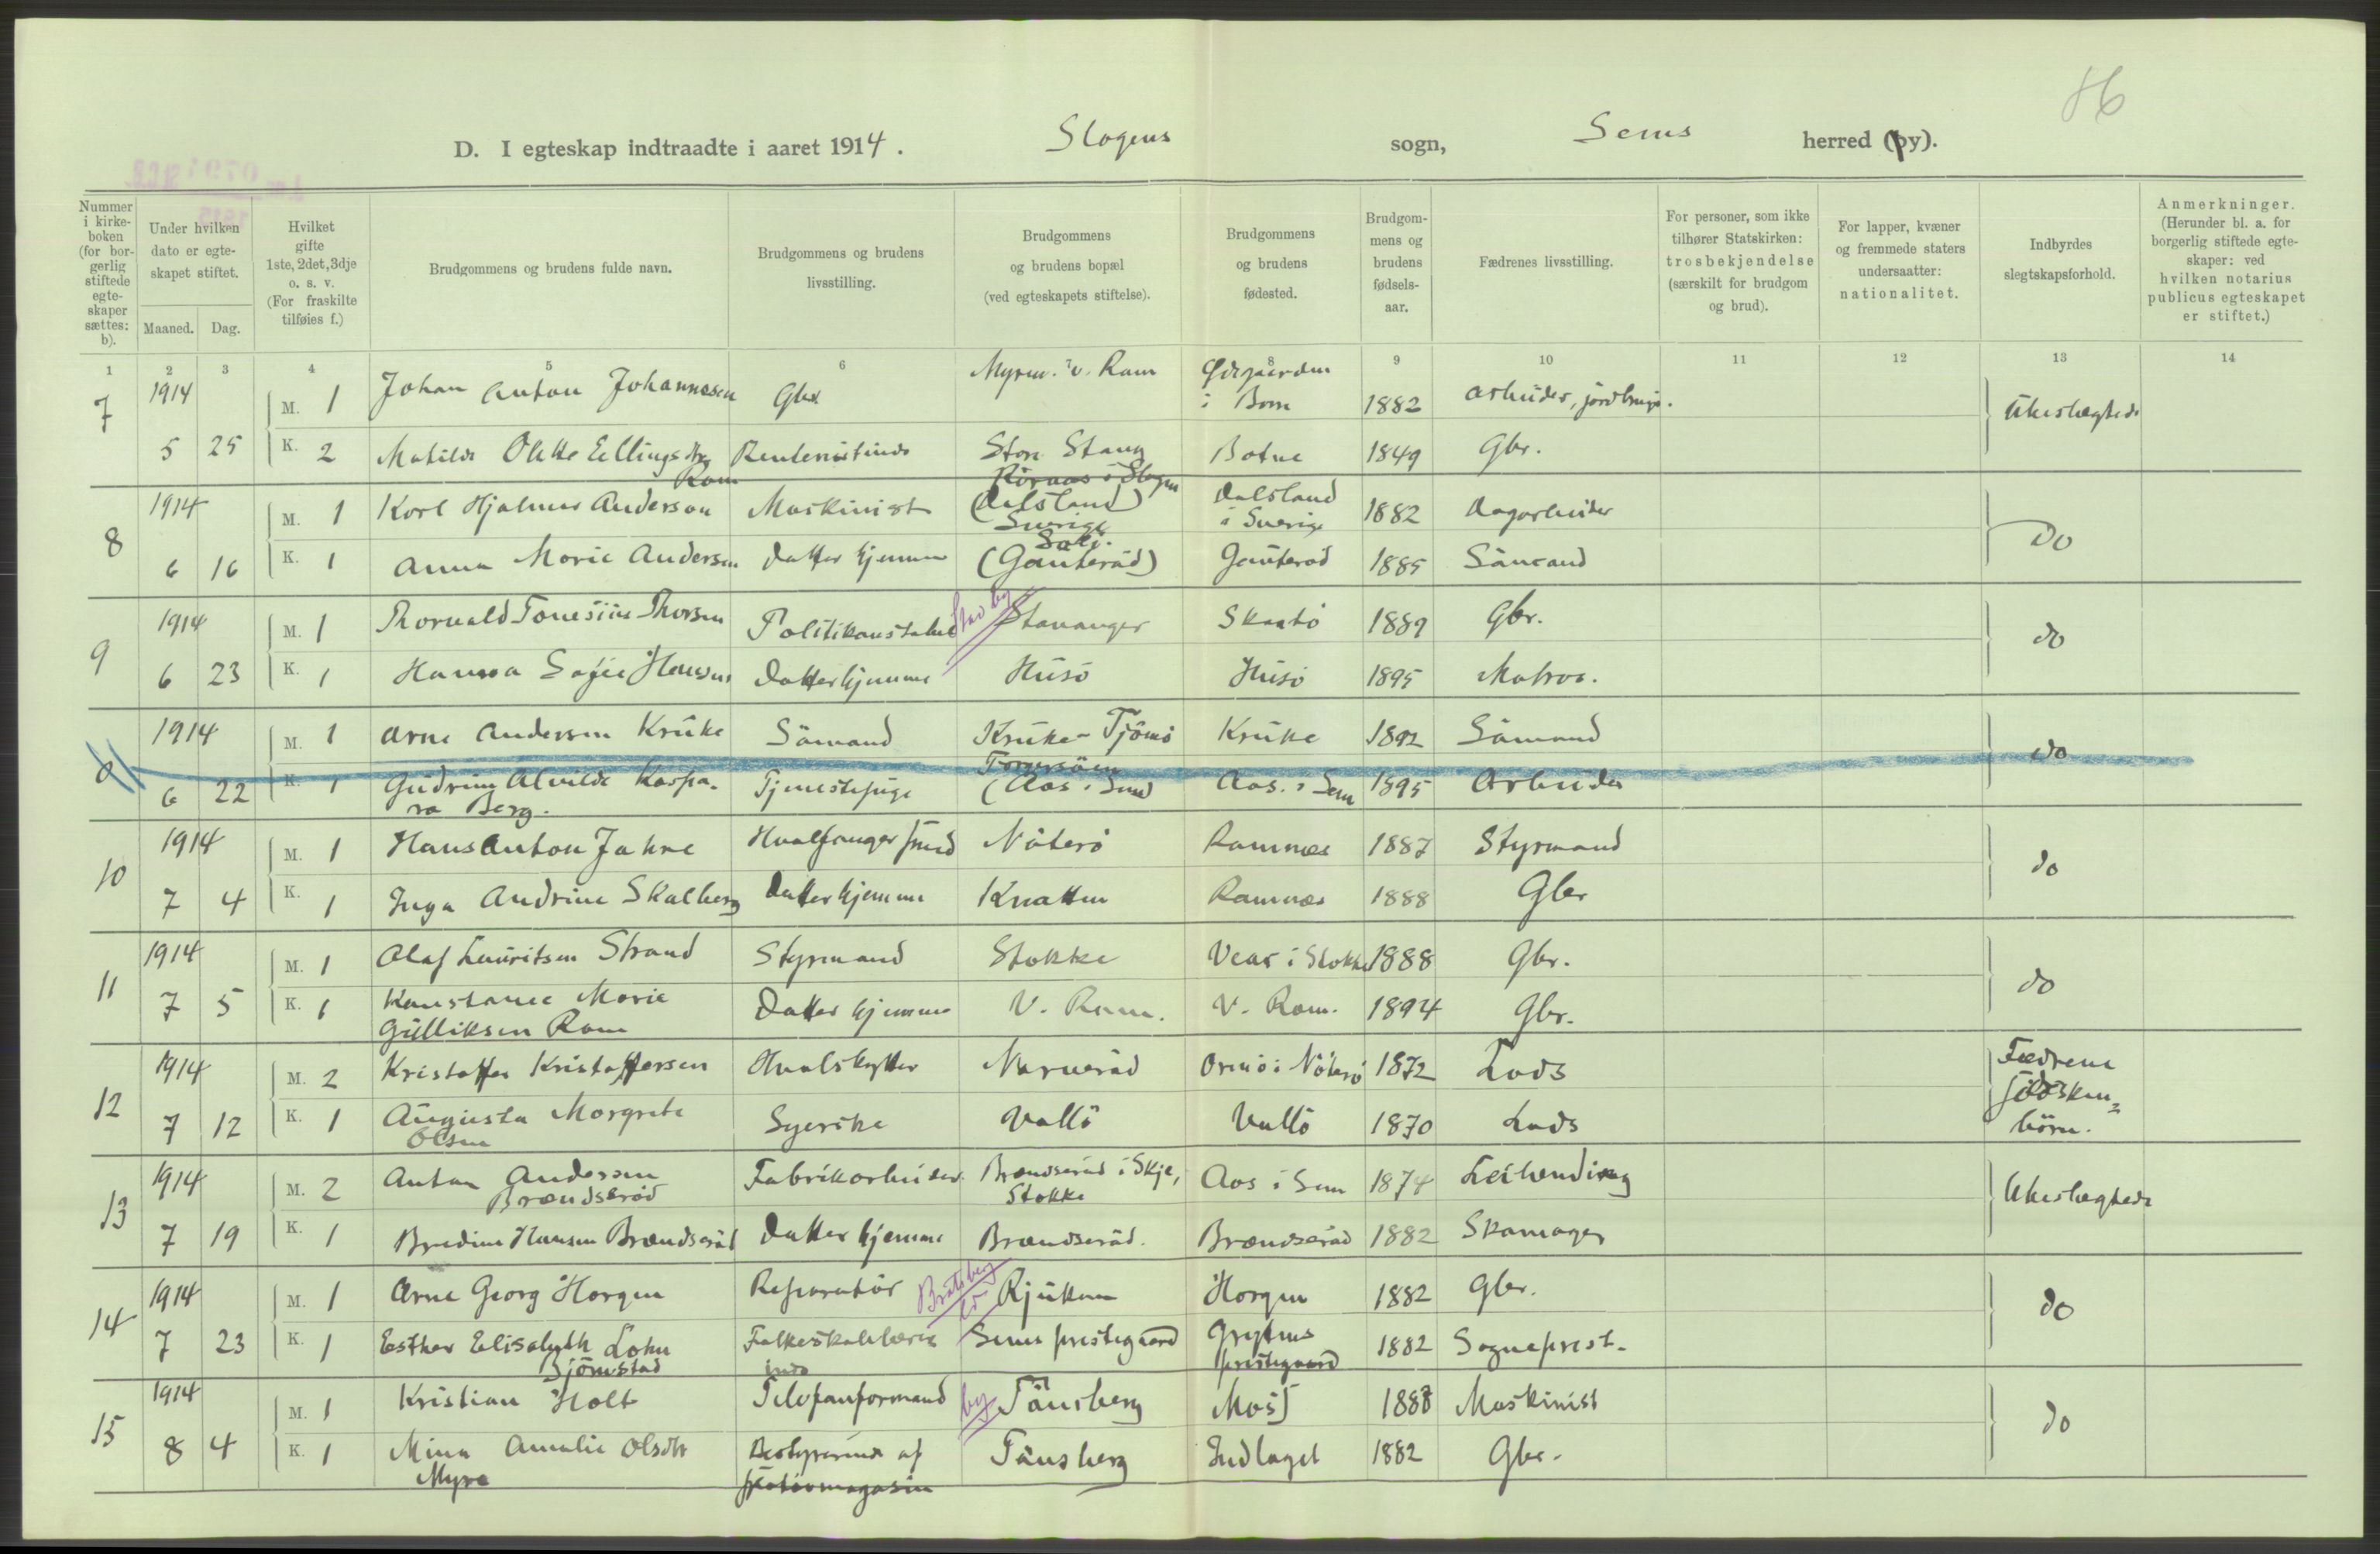 46
D. I egteskap indtraadte i aaret 1914. Slagens sogn, Sems herred (by).
Nummer i kirkeboken (for borgerlig stiftede egteskaper sættes: b).
Under hvilken dato er egteskapet stiftet.
Maaned. Dag.
Hvilket gifte 1ste, 2det, 3dje o. s. v. (For fraskilte tilføies f.)
Brudgommens og brudens fulde navn.
Brudgommens og brudens livsstilling.
Brudgommens og brudens bopæl (ved egteskapets stiftelse).
Brudgommens og brudens fødested.
Brudgommens og brudens fødselsaar.
Fædrenes livsstilling.
For personer, som ikke tilhører Statskirken: trosbekjendelse (særskilt for brudgom og brud).
For lapper, kvæner og fremmede staters undersaatter: nationalitet.
Indbyrdes slegtskapsforhold.
Anmerkninger. (Herunder bl. a. for borgerlig stiftede egteskaper: ved hvilken notarius publicus egteskapet er stiftet.)
1 2 3 4 5 6 7 8 9 10 11 12 13 14
7 1914 M. 1 Johan Anton Johannesen Gbr. v. Ram i 1882 arbeider,
5 25 K. 2 Matilde Ellingsdtr Ram Rentenistinde Store Stang Botne 1849 Gbr. Ubeslægtede
8 1914 M. 1 Karl Hjalmar Anderson Maskinist Röraas i Slagen (Dalsland Sverige) Dalsland i Sverige 1882 Dagarbeider
6 16 K. 1 Anna Marie Andersen Datter hjemme (Gauteråd) Gauteråd 1885 Sömand Do
9 1914 M. 1 Thorvald Thorsen Politikonstabel Stav by Stavanger Skaatö 1889 Gbr.
6 23 K. 1 Hanna Sofie Hansen Datter hjemme Husö Husö 1895 Matros. do
1914 M. 1 Arne Andersen Kruke Sömand Kruke - Tjömö Kruke 1892 Sömand
6 22 K. 1 Gudrun Alvilde Kaspara Berg. Tjenestepige (Aas i Sem) Aas i Sem 1895 Arbeider do
10 1914 M. 1 Hans Anton Jahre Nöterö Ramnes 1887 Styrmand
7 4 K. 1 Inga Andrine Skalberg Datter hjemme Knatten Ramnes 1888 Gbr do
11 1914 M. 1 Olaf Lauritsen Strand Styrmand Stokke Vear i Stokke 1888 Gbr.
7 5 K. 1 Konstance Marie Gulliksen Ram Datter hjemme V. Ram. V. Ram. 1894 Gbr. do
12 1914 M. 2 Kristoffer Kristoffersen Hvalskytter Narveråd Ormö i Nöterö 1872 Lods
7 12 K. 1 Augusta Margrete Olsen Syerske Vallö Vallö 1870 Lods Fædrene södskenbörn.
13 1914 M. 2 Anton Andersen Brændseråd Fabrikarbeider Brændseråd i Skje, Stokke Aas i Sem 1874 Leilending
7 19 K. 1 Bredine Hansen Brændseråd Datter hjemme Brændseråd. Brændseråd 1882 Skomager Ubeslægtede
14 1914 M. 1 Arne Georg Horgen Reparatör Bratsberg Rjukan Horgen 1882 Gbr.
7 23 K. 1 Esther Elisabeth Lohn Bjömstad Folkeskolelærerinde Sems prestegaard Grytens prestegaard 1882 Sogneprest. do
15 1914 M. 1 Kristian Holt Telefonformand by Tönsberg Moss 1888 Maskinist
8 4 K. 1 Mina Amalie Olsdtr Myre Bestyrerinde af Tönsberg Indlaget 1882 Gbr. do